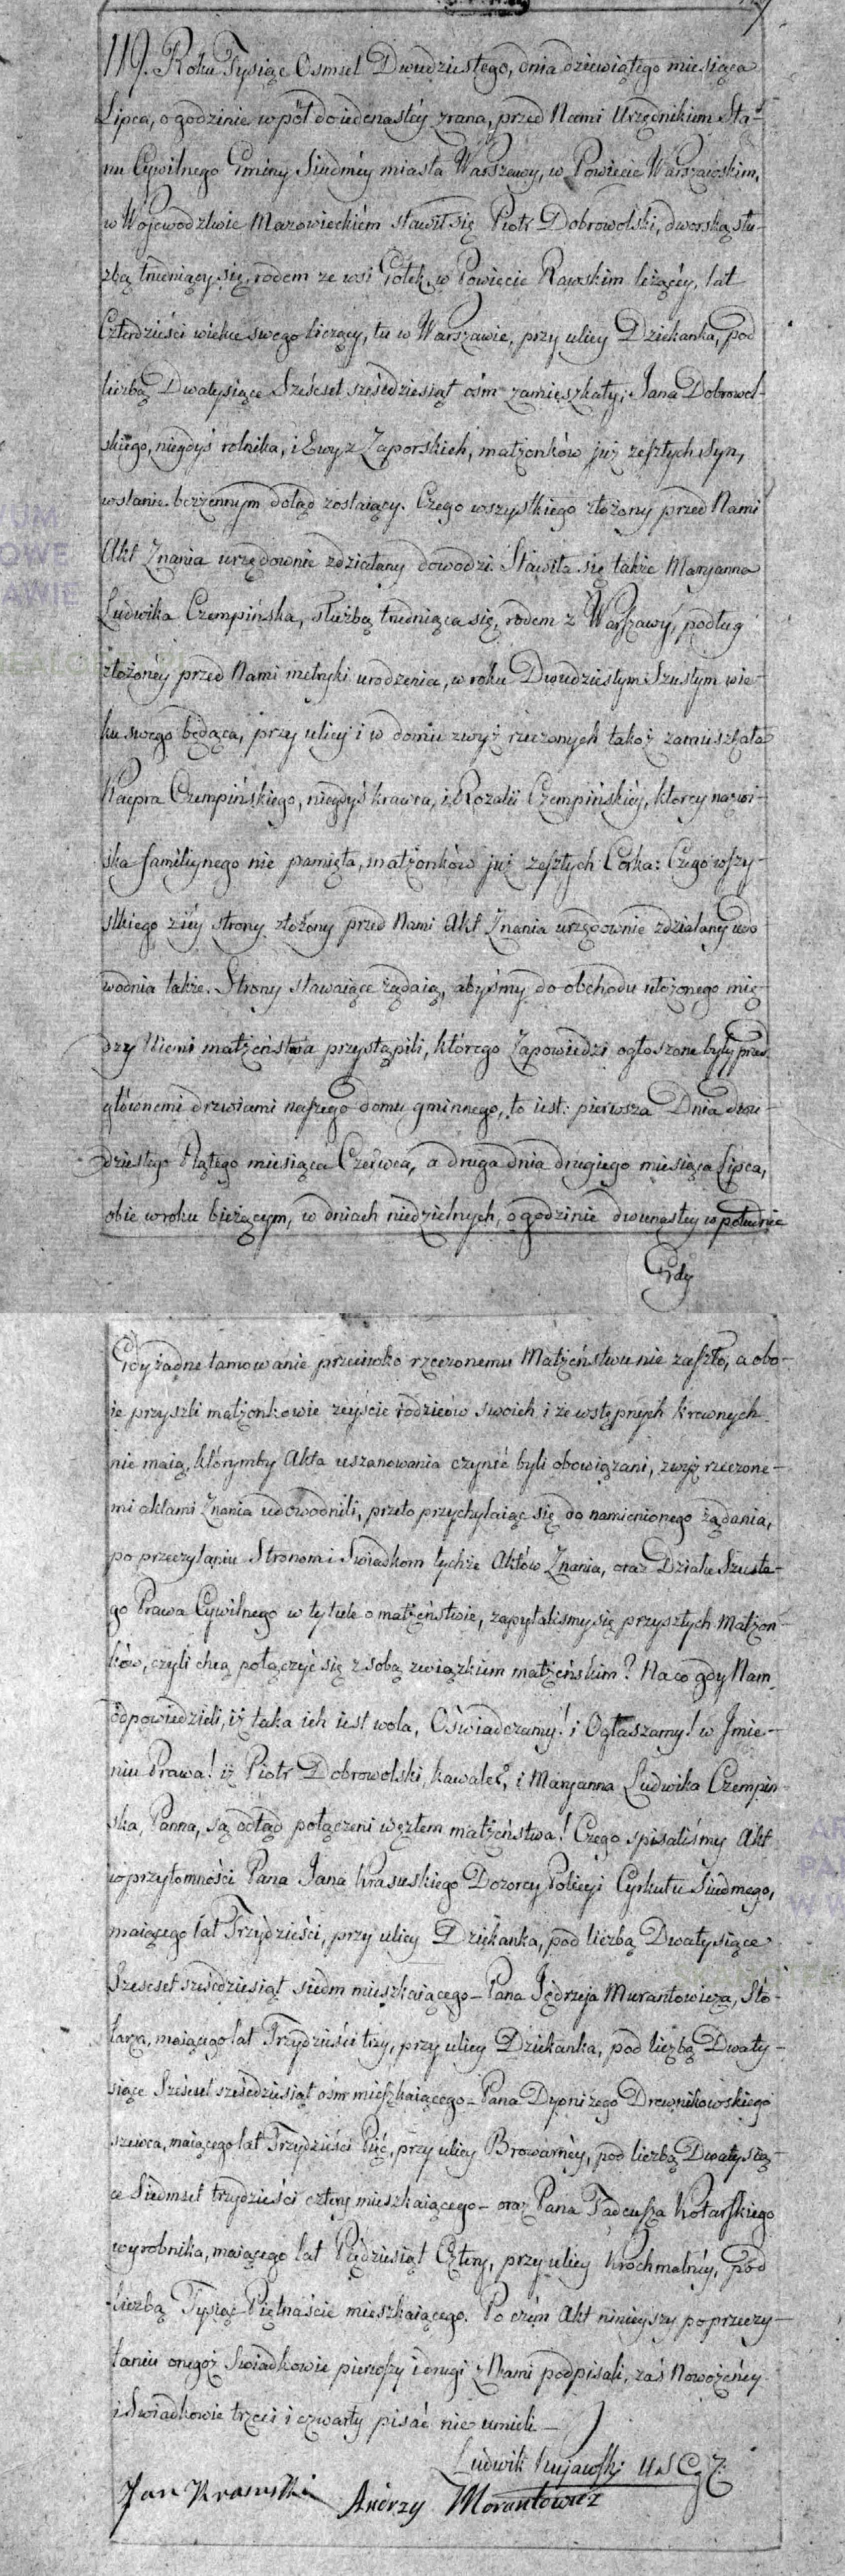 119. Roku Tysiąc Osmset Dwudziestego, dnia dziewiątego miesiąca
Lipca, o godzinie wpół do iedenastéy zrana, przed Nami Urzędnikiem Sta-
nu Cywilnego Gminy Siedméy miasta Warszawy, w Powiecie Warszawskim,
w Wojewodztwie Mazowieckiém stawił się Piotr Dobrowolski, dworską słu-
żbą trudniący się, rodem ze wsi Gołek, w Powiecie Rawskim leżącéy, lat
Czterdzieści wieku swego liczący, tu w Warszawie, przy ulicy Dziekanka, pod
liczbą Dwatysiące Sześcset sześćdziesiąt ośm zamieszkały; Jana Dobrowol-
skiego, niegdyś rolnika, i Ewy z Zaporskich, małżonków już zeszłych syn,
w stanie bezżennym dotąd zostaiący. Czego wszystkiego złożony przed Nami
Akt Znania urzędownie zdziałany dowodzi. Stawiła się także Maryanna
Ludwika Czempińska, służbą trudniąca się, rodem z Warszawy, podług
złożonéy przed Nami metryki urodzenia, w roku Dwudziestym Szustym wie-
ku swego będąca, przy ulicy i w domu zwyż rzeczonych takoż zamieszkała
Kacpra Czempińskiego, niegdyś krawca, i Rozalii Czempińskiéy, którey nazwi-
ska familiynego nie pamięta, małżonków już zeszłych Córka: Czego wszy-
stkiego z iéy strony złożony przed Nami Akt Znania urzędownie zdziałany udo
wodnia także. Strony stawaiące żądaią, abyśmy do obchodu ułożonego mię-
dzy Niemi małżeństwa przystąpili, którego Zapowiedzi ogłoszone były przed
głównemi drzwiami naszego domu gminnego, to iest: pierwsza Dnia dwu-
dziestego Piątego miesiąca Czerwca, a druga dnia drugiego miesiąca Lipca,
obie w roku bieżącym, w dniach niedzielnych, o godzinie dwunastey w południe
Gdy
Gdy żadne tamowanie przeciwko rzeczonemu Małżeństwu nie zaszło, a obo-
ie przyszli małżonkowie zeyście rodziców swoich i że wstępnych krewnych
nie maią, którymby Akta uszanowania czynić byli obowiązani, zwyż rzeczone-
mi aktami Znania udowodnili, przeto przychylaiąc się do namienionego żądania,
po przeczytaniu Stronom i Swiadkom tychże Aktów Znania, oraz Działu Szuste-
go Prawa Cywilnego w tytule o małżeństwie, zapytaliśmy się przyszłych Małżon
ków, czyli chcą połączyć się z sobą związkiem małżeńskim? Na co gdy Nam
odpowiedzieli, iż taka ich iest wola, Oświadczamy! i Ogłaszamy! w Jmie-
niu Prawa! iż Piotr Dobrowolski, kawaler, i Maryanna Ludwika Czempiń
ska, Panna, są odtąd połączeni węzłem małżeństwa! Czego spisaliśmy Akt
w przytomności Pana Jana Krasuskiego Dozorcy Policyi Cyrkułu Siedmego,
maiącego lat Trzydzieści, przy ulicy Dziekanka, pod liczbą Dwatysiące
Sześcset sześćdziesiąt siedm mieszkaiącego – Pana Jędrzeja Murantowicza, Sto-
larza, maiącego lat Trzydzieści trzy, przy ulicy Dziekanka, pod liczbą Dwaty-
siące Sześcset sześćdziesiąt ośm mieszkaiącego – Pana Dyonizego Drewnikowskiego
szewca, maiącego lat Trzydzieści Pięć, przy ulicy Browarnéy, pod liczbą Dwatysią-
ce Siedmset trzydzieści cztery mieszkaiącego – oraz Pana Tadeusza Kotarskiego
wyrobnika, maiącego lat Pięćdziesiąt Cztery, przy ulicy Krochmalnéy, pod
liczbą Tysiąc Piętnaście mieszkaiącego. Po czém Akt ninieyszy po przeczy-
taniu onegoż Swiadkowie pierwszy i drugi z Nami podpisali, zaś Nowożeńcy
i Swiadkowie trzeci i czwarty pisać nie umieli –
Ludwik Kujawski USCG7
Jan Krasuski Andrzy Morantowicz